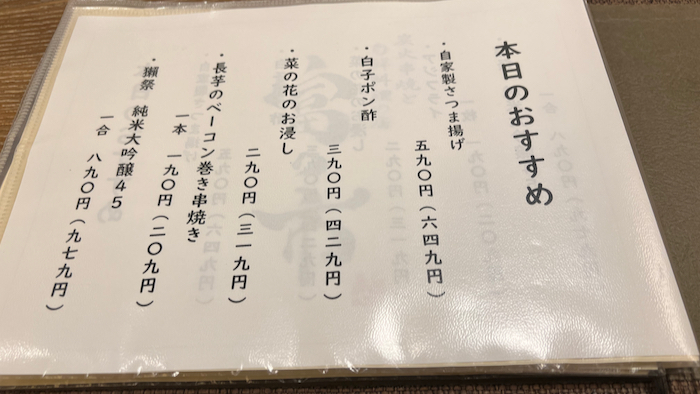 本日のおすすめ
・自家製さつま揚げ
五九〇円(六四九円)
・白子ポン酢
三九〇円(四二九円)
・菜の花のお浸し
二九〇円(三一九円)
・長芋のベーコン巻き串焼き
一本 一九〇円(二〇九円)
・獺祭 純米大吟醸45
一合 八九〇円(九七九円)